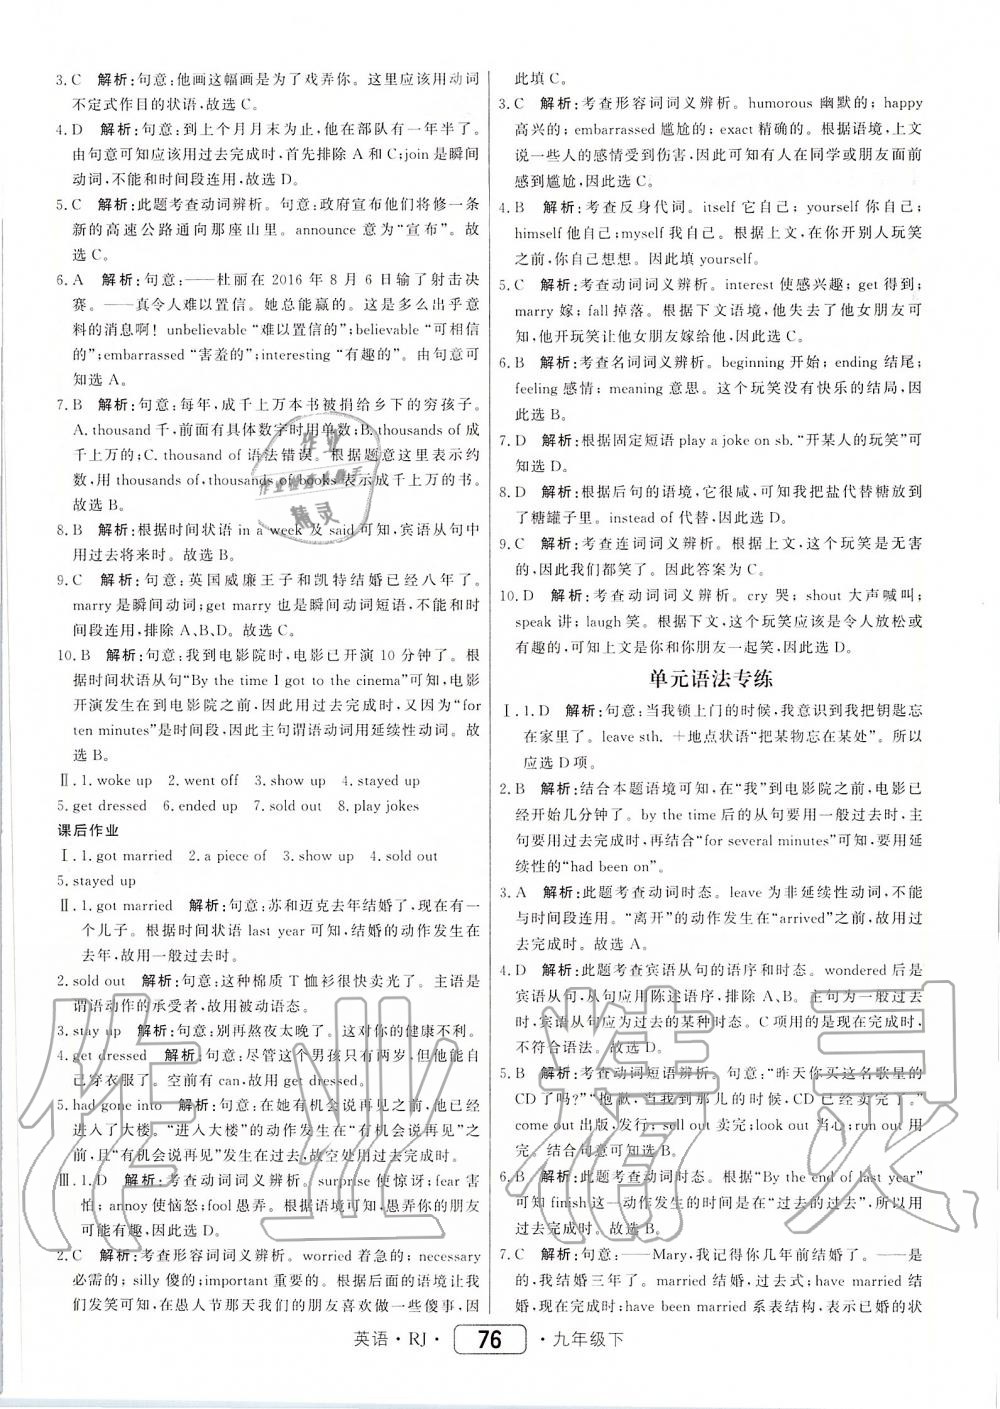 3. C　解析:句意:他画这幅画是为了戏弄你。这里应该用动词
不定式作目的状语,故选 C。
4. D　解析:句意:到上个月月末为止,他在部队有一年半了。
由句意可知应该用过去完成时,首先排除 A 和 C;join 是瞬间
动词,不能和时间段连用,故选 D。
5. C　解析:此题考查动词辨析。句意:政府宣布他们将修一条
新的高速公路通向那座山里。announce 意为“宣布”。故
选 C。
6. A　解析:句意:——杜丽在 2016 年 8 月 6 日输了射击决
赛。——真令人难以置信。她总能赢的。这是多么出乎意
料的消息啊! unbelievable “难以置信的”;believable “可相信
的”;embarrassed “害羞的”;interesting “有趣的”。由句意可
知选 A。
7. B　解析:句意:每年,成千上万本书被捐给乡下的穷孩子。
A. thousand 千,前面有具体数字时用单数;B. thousands of 成
千上万的;C. thousand of 语法错误。根据题意这里表示约
数,用 thousands of,thousands of books 表示成千上万的书。
故选 B。
8. B　解析:根据时间状语 in a week 及 said 可知,宾语从句中
用过去将来时。故选 B。
9. C　解析:句意:英国威廉王子和凯特结婚已经八年了。
marry 是瞬间动词;get marry 也是瞬间动词短语,不能和时
间段连用,排除 A、B、D。故选 C。
10. B　解析:句意:我到电影院时,电影已开演 10 分钟了。根
据时间状语从句“By the time I got to the cinema”可知,电影
开演发生在到电影院之前,因此用过去完成时,又因为“for
ten minutes”是时间段,因此主句谓语动词用延续性动词。故
选 B。
Ⅱ. 1. woke up　2. went off　3. show up　4. stayed up
5. get dressed　6. ended up　7. sold out　8. play jokes
课后作业
Ⅰ. 1. got married　2. a piece of　3. show up　4. sold out
5. stayed up
Ⅱ. 1. got married　解析:句意:苏和迈克去年结婚了,现在有一
个儿子。根据时间状语 last year 可知,结婚的动作发生在
去年,故用一般过去时。
2. sold out　解析:句意:这种棉质 T 恤衫很快卖光了。主语是
谓语动作的承受者,故用被动语态。
3. stay up　解析:句意:别再熬夜太晚了。这对你的健康不利。
4. get dressed　解析:句意:尽管这个男孩只有两岁,但他能自
己穿衣服了。空前有 can,故用 get dressed。
5. had gone into　解析:句意:在她有机会说再见之前,他已经
进入了大楼。“进入大楼”的动作发生在“有机会说再见”之
前,且“有机会说再见”发生在过去,故空处用过去完成时。
Ⅲ. 1. D　解析:考查动词词义辨析。surprise 使惊讶;fear 害
怕; annoy 使恼怒;fool 愚弄。根据语境可知,愚弄你的朋友
可能有趣,因此选 D。
2. C　解析:考查形容词词义辨析。worried 着急的; necessary
必需的; silly 傻的;important 重要的。根据后面的语境让我
们发笑可知,在愚人节那天我们的朋友喜欢做一些傻事,因
此填 C。
3. C　解析:考查形容词词义辨析。humorous 幽默的; happy
高兴的; embarrassed 尴尬的; exact 精确的。根据语境,上文
说一些人的感情受到伤害,因此可能有人在同学或朋友面前
感到尴尬,因此选 C。
4. B　解析:考查反身代词。itself 它自己; yourself 你自己;
himself 他自己;myself 我自己。根据上文,在你开别人玩笑
之前,你自己想想。因此填 yourself。
5. C　解析:考查动词词义辨析。interest 使感兴趣; get 得到;
marry 嫁; fall 掉落。根据下文语境,他失去了他女朋友可
知,他开玩笑让他女朋友嫁给他,因此选 C。
6. B　解析:考查名词词义辨析。beginning 开始; ending 结尾;
feeling 感情; meaning 意思。这个玩笑没有快乐的结局,因
此选 B。
7. D　解析:根据固定短语 play a joke on sb. “开某人的玩笑”可
知,因此选 D。
8. D　解析:根据后句的语境,它很咸,可知我把盐代替糖放到
了糖罐子里。instead of 代替,因此选 D。
9. C　解析:考查连词词义辨析。根据上文,这个玩笑是无害
的,因此我们都笑了。因此答案为 C。
10. D　解析:考查动词词义辨析。cry 哭; shout 大声喊叫;
speak 讲; laugh 笑。根据下文,这个玩笑应该是令人放松或
有趣的,可知上文是你和你朋友一起笑,因此选 D。
单元语法专练
Ⅰ. 1. D　解析:句意:当我锁上门的时候,我意识到我把钥匙忘
在家里了。leave sth. ＋地点状语“把某物忘在某处”。所以
应选 D 项。
2. B　解析:结合本题语境可知,在“我”到电影院之前,电影已
经开始几分钟了。by the time 后的从句要用一般过去时,主
句要用过去完成时,再结合“for several minutes”可知,要用延
续性的“had been on”。
3. A　解析:此题考查动词时态。leave 为非延续性动词,不能
与时间段连用。“离开”的动作发生在“arrived”之前,故用过
去完成时。故选 A。
4. D　解析:此题考查宾语从句的语序和时态。wondered 后是
宾语从句,从句应用陈述语序,排除 A、B。主句为一般过去
时,宾语从句应为过去的某种时态。C 项用的是现在完成时,
不符合语法。故选 D。
5. B　解析:考查动词短语辨析。句意:“昨天你买这名歌星的
CD了吗?”“抱歉,当我到那儿的时候,CD 已经卖完了。”
come out 出版,发行; sell out 卖完;look out 当心;run out 用
完。结合句意可知选 B。
6. B　解析:此题考查动词时态。根据“By the end of last year”
可知 finish 这一动作发生的时间是在“过去的过去”,所以用
过去完成时。故选 B。
7. C　解析:句意:——Mary,我记得你几年前结婚了。——是
的,我结婚三年了。married 结婚,过去式;have married 结
婚,现在完成时;have been married 系表结构,表示已婚的状
英语・RJ・ 76 ・九年级下
作业
作业做题帮手
精灵
作业精灵